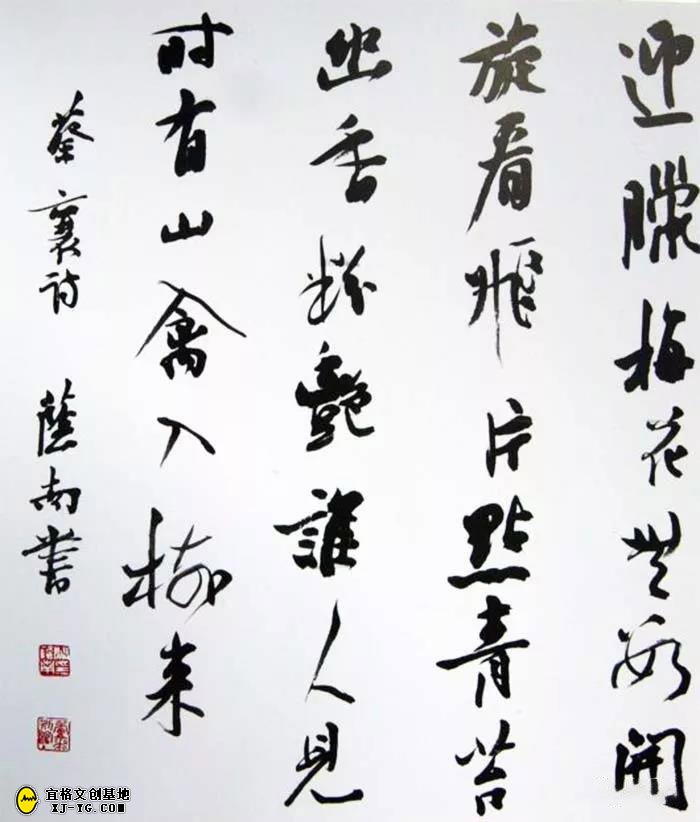 迎臘梅花無數開
旋看飛片點青苔
幽香粉艷誰人見
时有山禽入樹来
蔡襄诗 蔭南書
宜格文创基地
XJ-YG.COM